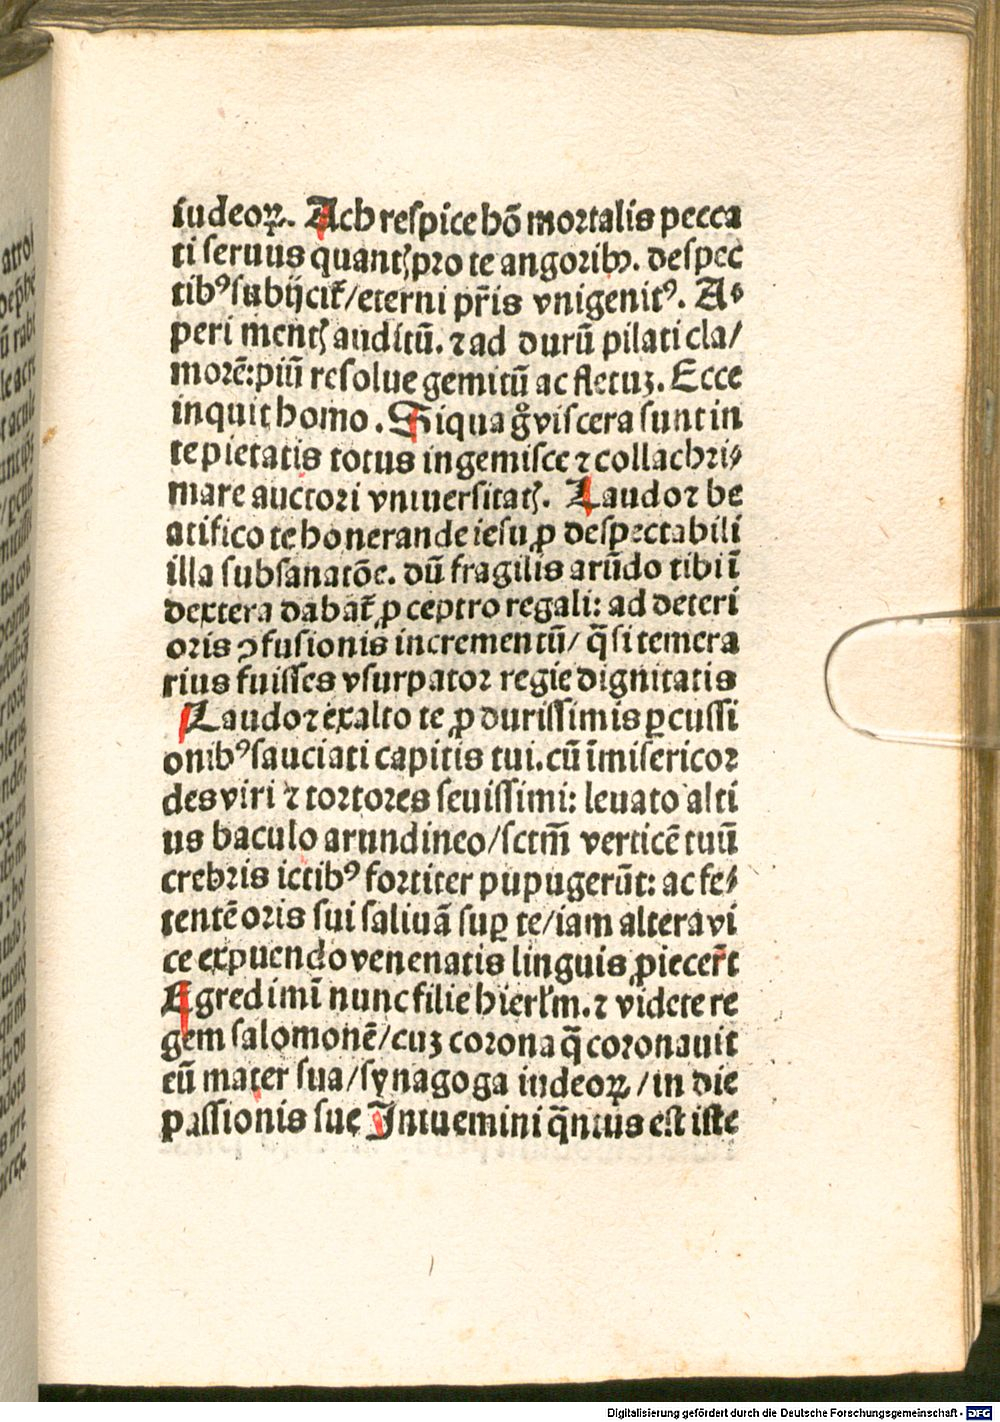 iudeoꝝ. Ach respice hõ mortalis pecca
ti seruus quantꝭ pro te angoribꝰ. despec
tibꝰ subijcit᷑/eterni pr̃is vnigenitꝰ. A⸗
peri mentꝭ auditũ. ⁊ ad durũ pilati cla/
morẽ: piũ resolue gemitũ ac fletuꝫ. Ecce
inquit homo. Siqua g̊ viscera sunt in
te pietatis totus ingemisce ⁊ collachri⸗
mare auctori vniuersitatꝭ. Laudo ⁊ be
atifico te honerande iesu ꝓ despectabili
illa subsanatõe. dũ fragilis arũdo tibi ĩ
dextera dabat᷑ ꝓ ceptro regali: ad deteri
oris ↄfusionis incrementũ/ q̃si temera
rius fuisses vsurpator regie dignitatis
Laudo ⁊ exalto te ꝓ durissimis ꝑcussi
onibꝰ sauciati capitis tui. cũ ĩmisericor
des viri ⁊ tortores seuissimi: leuato alti
us baculo arundineo/sctm̃ verticẽ tuũ
crebris ictibꝰ fortiter pupugerũt: ac fe⸗
tentẽ oris sui saliuã suꝑ te/iam altera vi
ce expuendo venenatis linguis ꝓiecer̃t
Egredimĩ nunc filie hierl̃m. ⁊ videte re
gem salomonẽ/cuꝫ corona q̃ coronauit
eũ mater sua/synagoga iudeoꝝ/in die
passionis sue Intuemini q̃ntus est iste
Digitalisierung gefördert durch die Deutsche Forschungsgemeinschaft - DFG